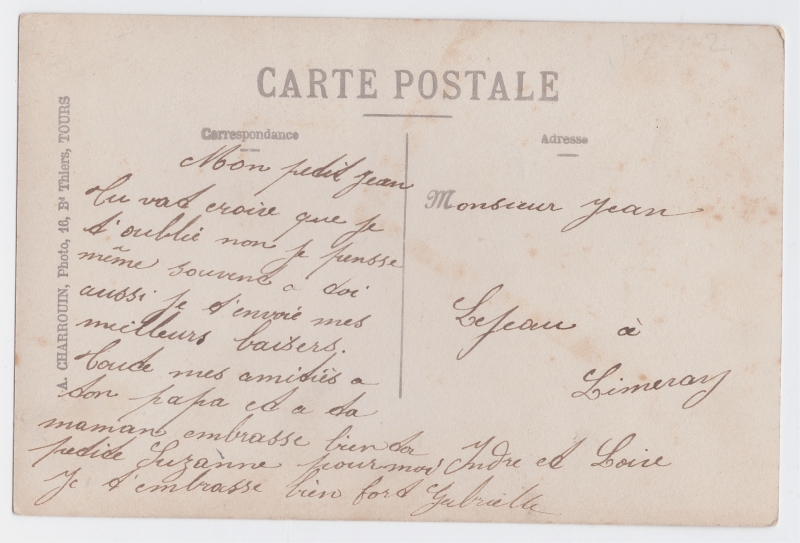 CARTE POSTALE
Correspondance
Adresse
A. CHARROUIN, Photo, 16, Bd Thiers, TOURS
Mon petit Jean
Tu vat croire que je
t'oublie non je pensse
même souvent a toi
aussi je t'envoie mes
meilleurs baisers.
Toute mes amitiés a
ton papa et a ta
maman, embrasse bien ta
petite Suzanne pour moi
Je t'embrasse bien fort Gabrielle
Monsieur Jean
LeJeau à
Limeray
Indre et Loire